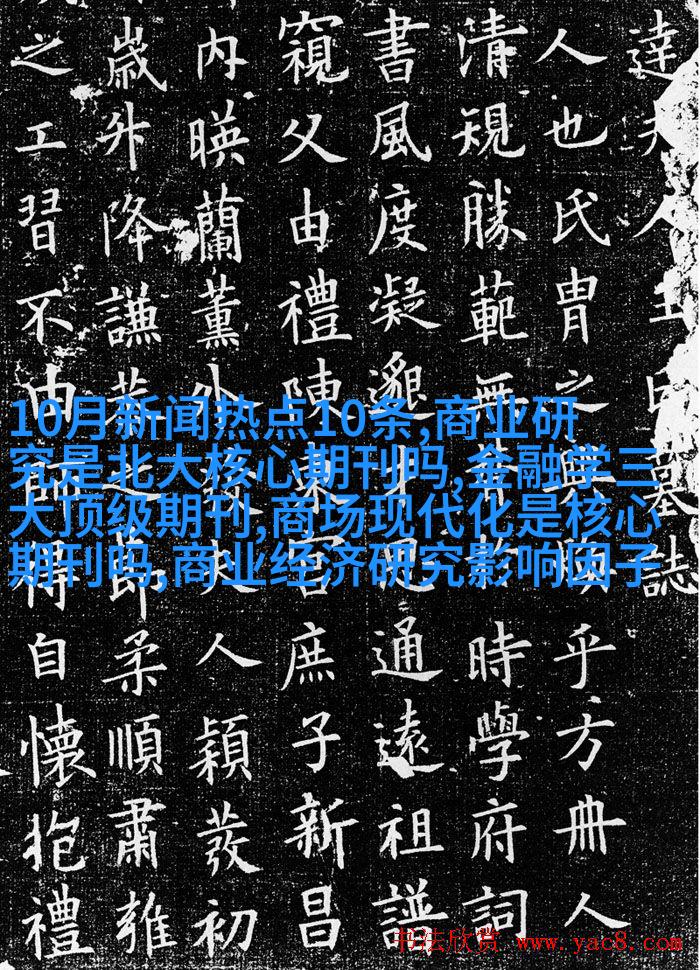 達夫人王墓誌
人也氏胄之興煥乎方冊人
清規勝範無替於時學府詞
書風度凝邈步思通遠祖諶
窺父由禮陳東宮庶子新昌
内暎蘭薰外發夫人穎發初
歲升降謙恭之節柔順肅雍
之工習不由師得自懷抱禮
10月新闻热点10条,商业研
究是北大核心期刊吗,金融学三
大顶级期刊,商场现代化是核心
期刊吗,商业经济研究影响因子
书法欣赏 www.yac8.com